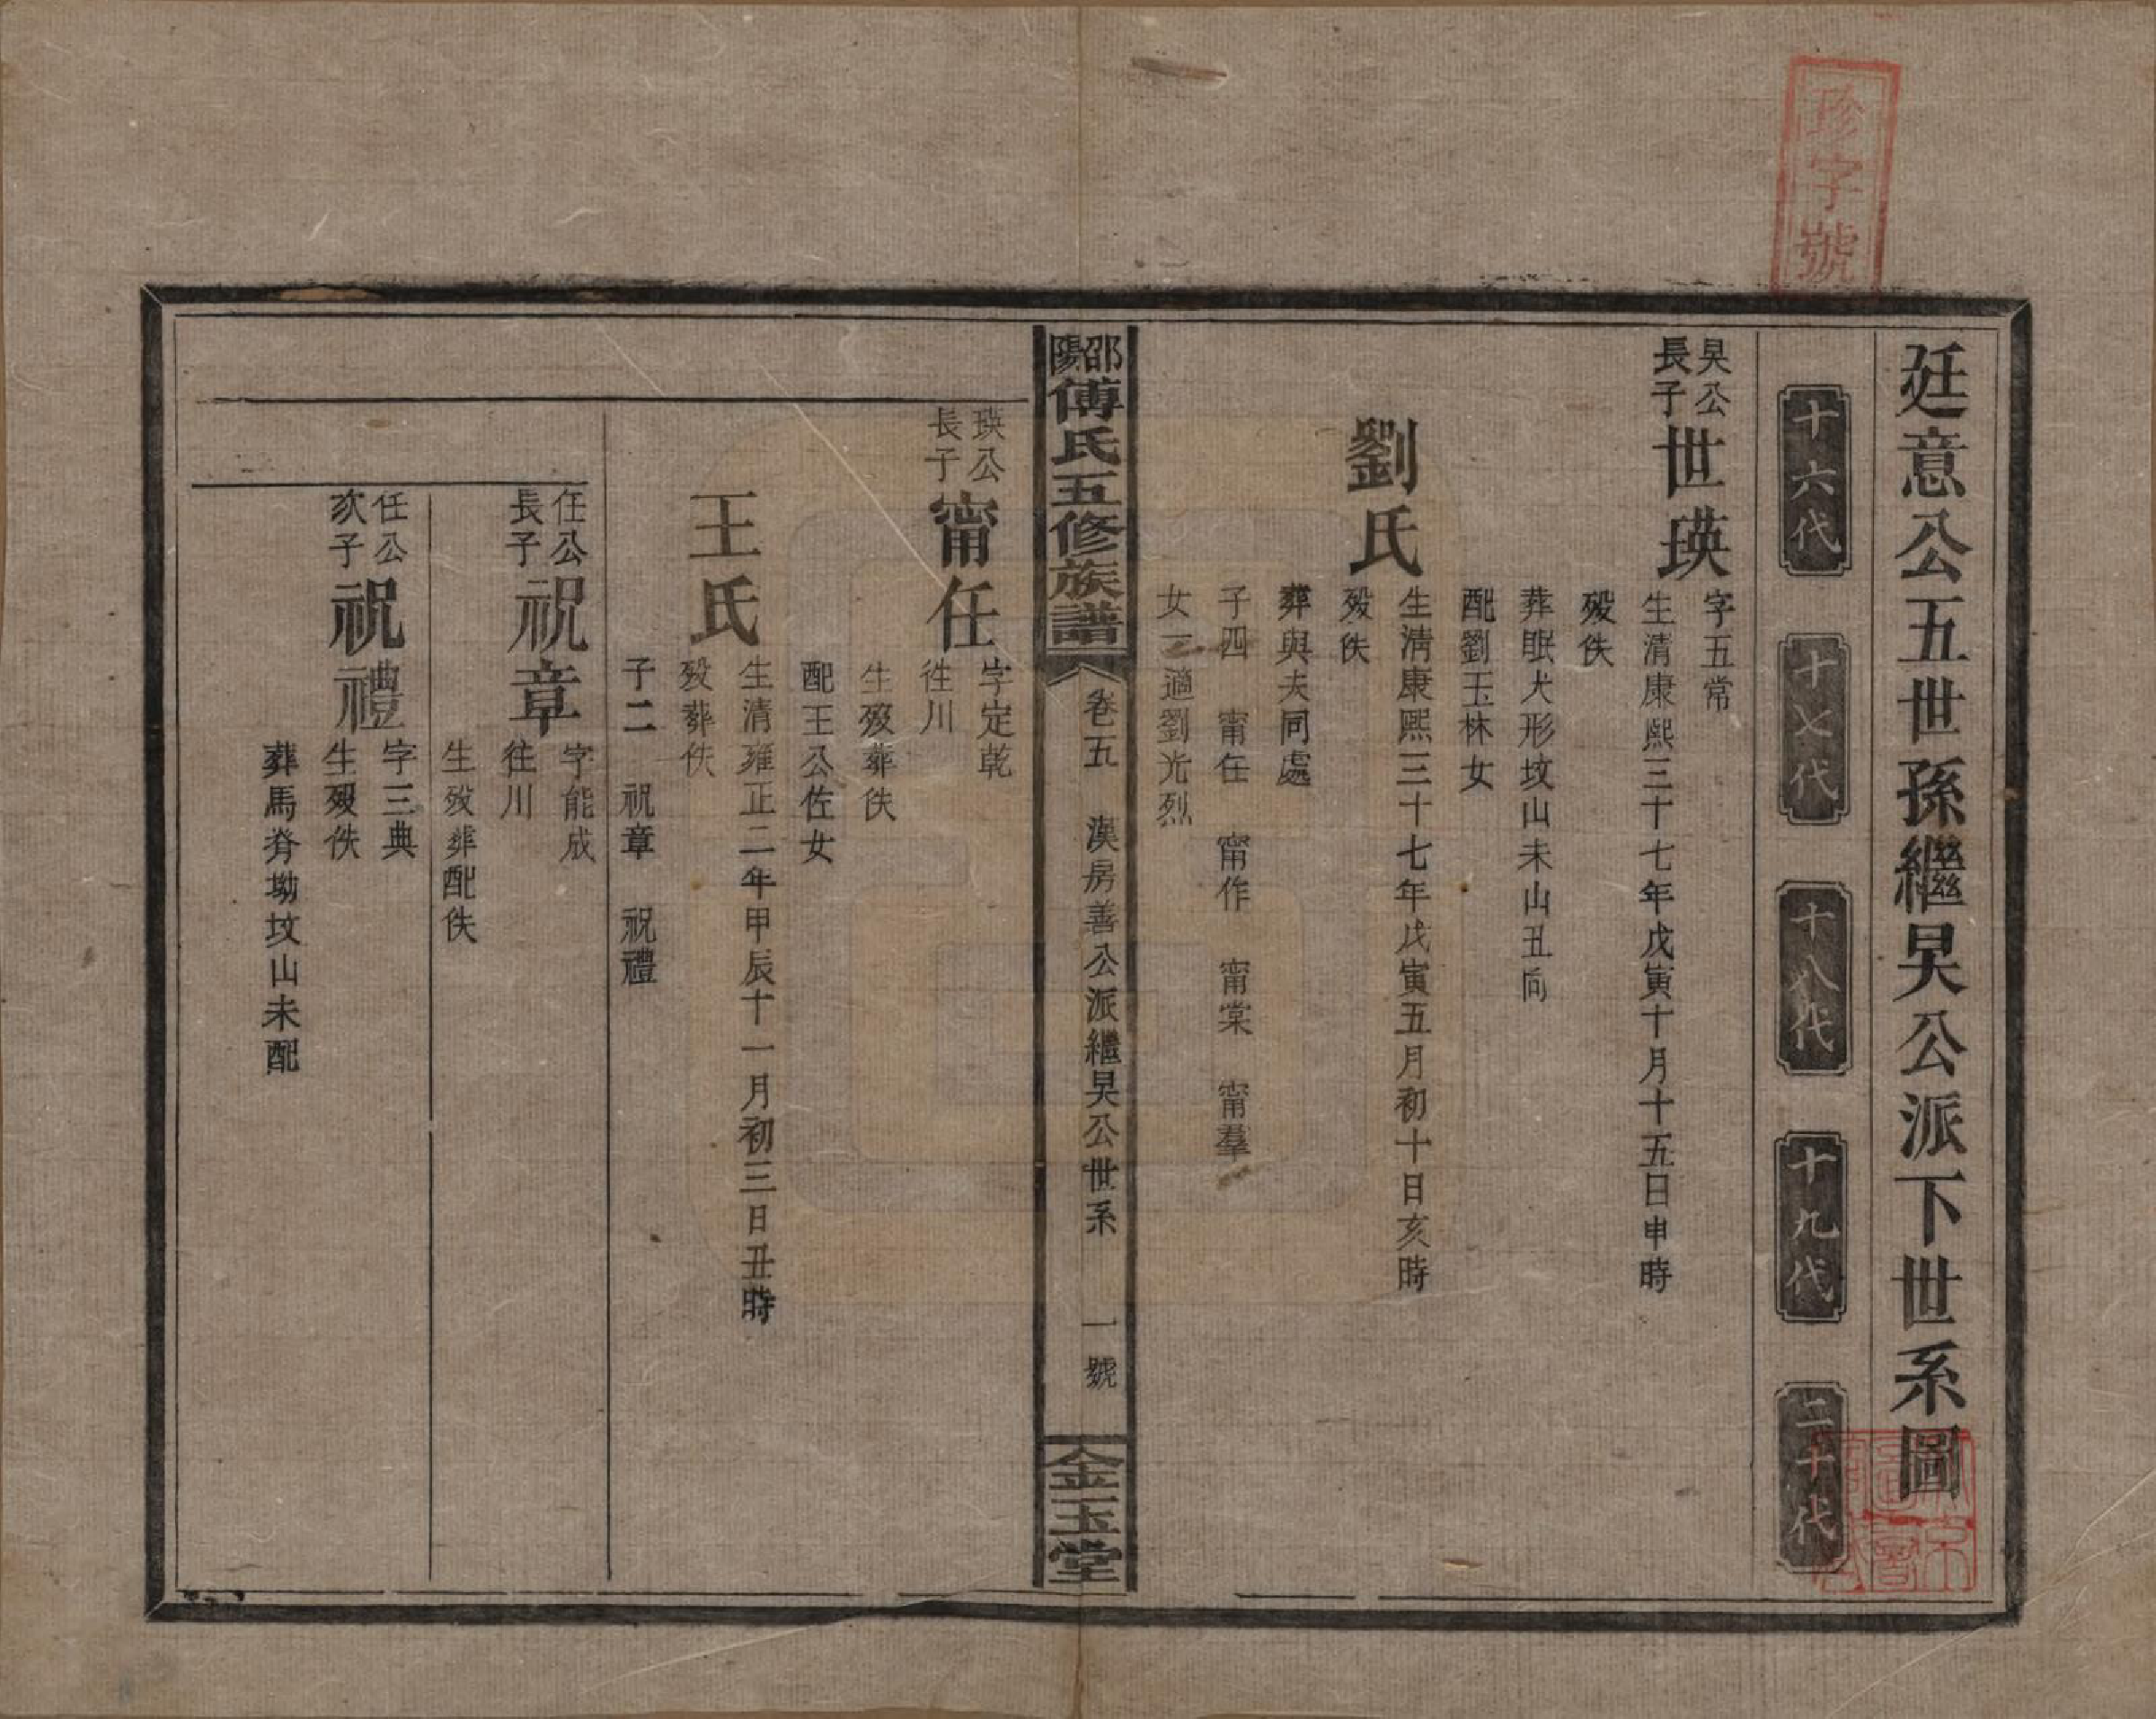 珍字號
廷意公五世孫繼昊公派下世系圖
十六代
十七代
十八代
十九代
二十代
昊公
長子
世瑛
字五常
生清康熙三十七年戊寅十月十五日申時
歿佚
葬眠犬形坟山未山丑向
配劉玉林女
劉氏
生清康熙三十七年戊寅五月初十日亥時
歿佚
葬與夫同處
子四 甯任 甯作 甯棠 甯羣
女一適劉光烈
邵陽傅氏五修族譜
卷五 漢房善公派繼昊公世系 一號
金玉堂
瑛公
長子
甯任
字定乾
徃川
生歿葬佚
配王公佐女
王氏
生清雍正二年甲辰十一月初三日丑時
歿葬佚
子二 祝章 祝禮
任公
長子
祝章
字能成
往川
生歿葬配佚
任公
次子
祝禮
字三典
生歿佚
葬馬脊坳坟山未配